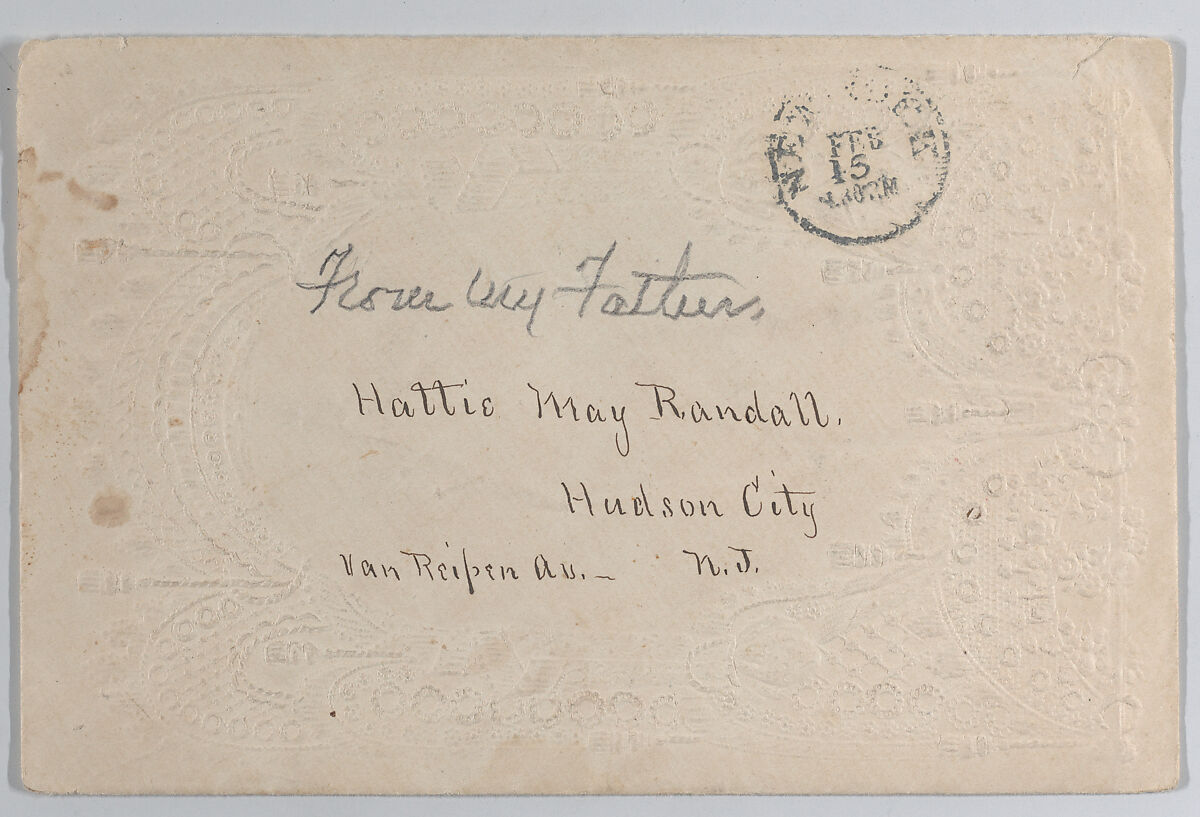 NEW YORK
FEB
15
From My Father,
Hattie May Randall.
Hudson City
Van Reipen Av. – N.J.